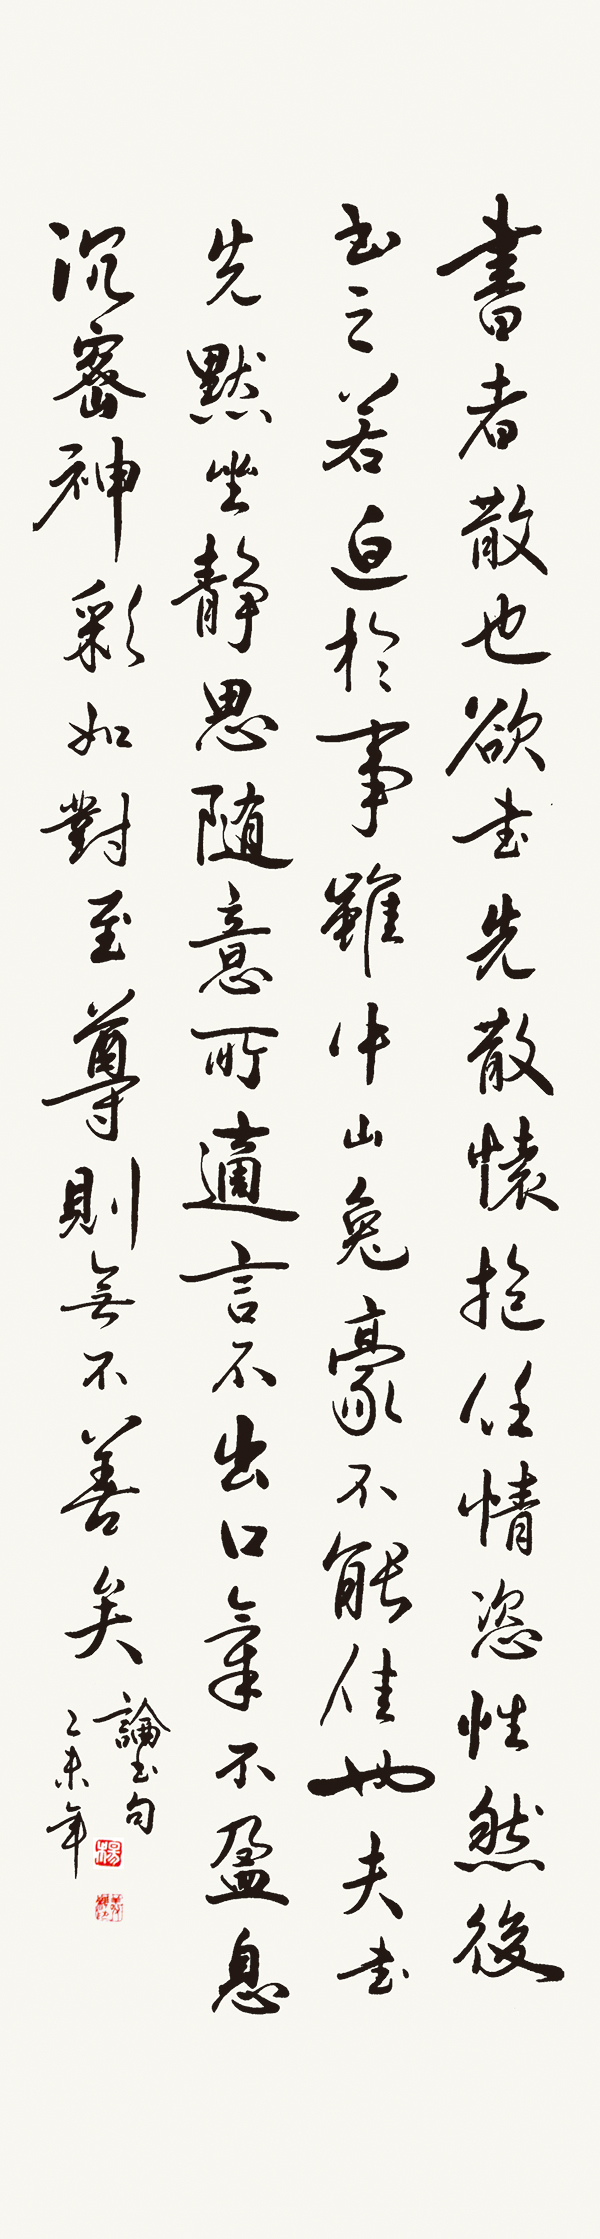 書者散也欲书先散懷抱任情恣性然後
书之若迫於事雖中山兔豪不能佳也夫书
先默坐靜思随意所適言不出口氣不盈息
沉密神彩如對至尊則無不善矣
論书句
乙未年
楊